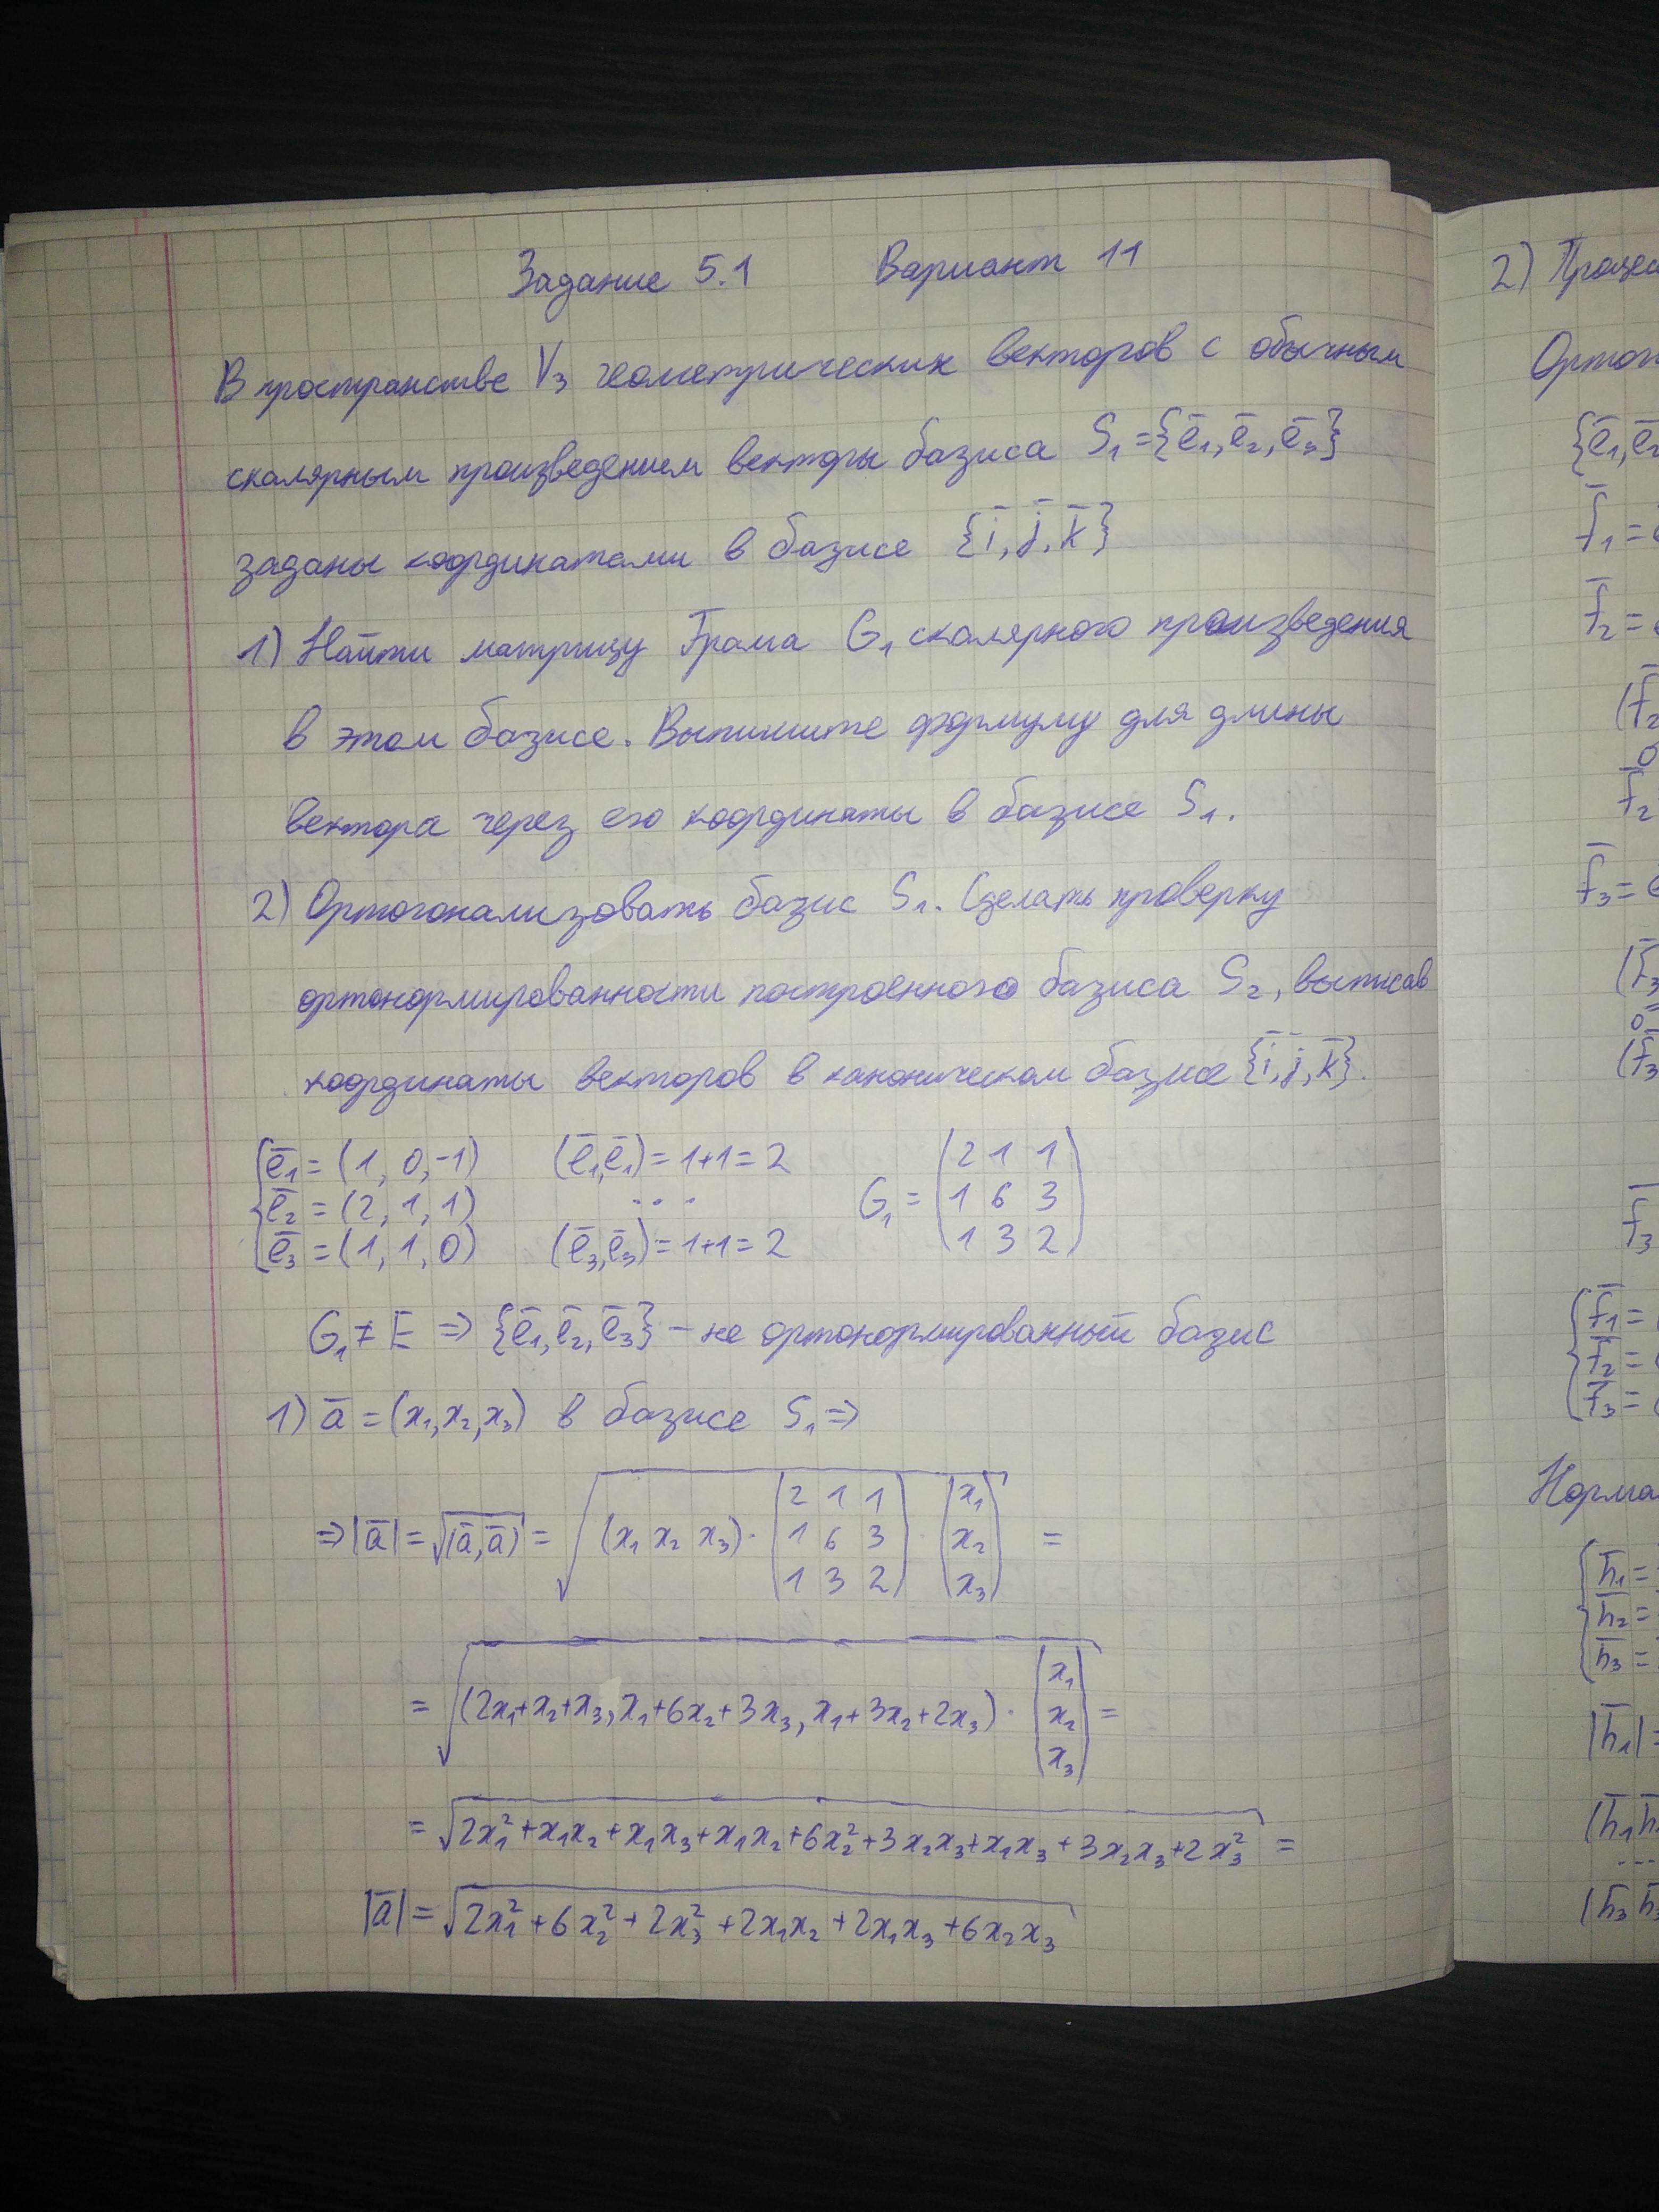 Задание 5.1 Вариант 11
В пространстве V₃ геометрических векторов с обычным
скалярным произведением векторы базиса S₁={e̅₁,e̅₂,e̅₃}
заданы координатами в базисе {i̅,j̅,k̅}
1) Найти матрицу Грама G₁ скалярного произведения
в этом базисе. Выпишите формулу для длины
вектора через его координаты в базисе S₁.
2) Ортогонализовать базис S₁. Сделать проверку
ортонормированности построенного базиса S₂, выписав
координаты векторов в каноническом базисе {i̅,j̅,k̅}.
e̅₁=(1, 0,-1) (e̅₁,e̅₁)=1+1=2 2 1 1
e̅₂=(2, 1, 1) ... G₁= 1 6 3
e̅₃=(1, 1, 0) (e̅₃,e̅₃)=1+1=2 1 3 2
G₁≠E ⇒ {e̅₁,e̅₂,e̅₃} – не ортонормированный базис
1) a̅=(x₁,x₂,x₃) в базисе S₁⇒
2 1 1 x₁
⇒|a̅|=√(a̅,a̅)=√(x₁ x₂ x₃)· 1 6 3 · x₂ =
1 3 2 x₃
x₁
=√(2x₁+x₂+x₃, x₁+6x₂+3x₃, x₁+3x₂+2x₃)· x₂ =
x₃
=√2x₁²+x₁x₂+x₁x₃+x₁x₂+6x₂²+3x₂x₃+x₁x₃+3x₂x₃+2x₃² =
|a̅|=√2x₁²+6x₂²+2x₃²+2x₁x₂+2x₁x₃+6x₂x₃
2)
{e̅₁,e̅₂
f̅₁=
f̅₂=
(f̅₂
0
f̅₂
f̅₃=
(f̅₃
0
(f̅₃
f̅₃
f̅₁=
f̅₂=
f̅₃=
h̅₁=
h̅₂=
h̅₃=
|h̅₁|=
(h̅₁h̅
...
(h̅₃h̅